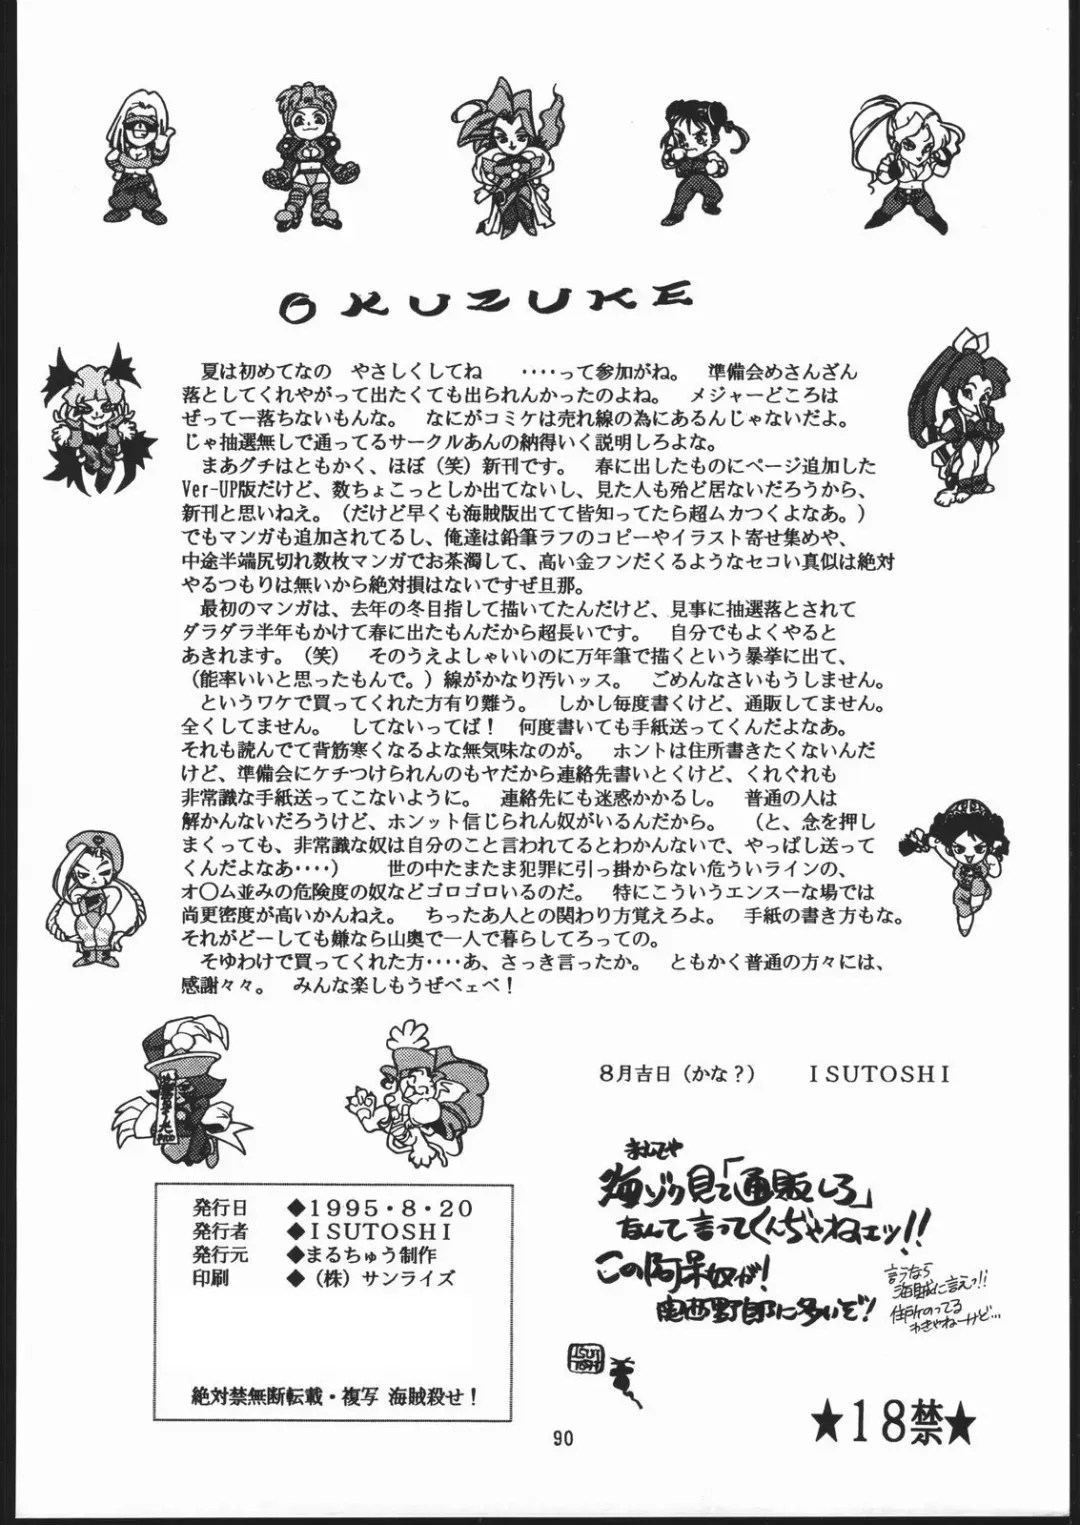 OKUZUKE
夏は初めてなの　やさしくしてね　　‥‥って参加がね。　準備会めさんざん
落としてくれやがって出たくても出られんかったのよね。　メジャーどころは
ぜって一落ちないもんな。　なにがコミケは売れ線の為にあるんじゃないだよ。
じゃ抽選無しで通ってるサークルあんの納得いく説明しろよな。
まあグチはともかく、ほぼ（笑）新刊です。　春に出したものにページ追加した
Ver-UP版だけど、数ちょこっとしか出てないし、見た人も殆ど居ないだろうから、
新刊と思いねえ。（だけど早くも海賊版出てて皆知ってたら超ムカつくよなあ。）
でもマンガも追加されてるし、俺達は鉛筆ラフのコピーやイラスト寄せ集めや、
中途半端尻切れ数枚マンガでお茶濁して、高い金フンだくるようなセコい真似は絶対
やるつもりは無いから絶対損はないですぜ旦那。
最初のマンガは、去年の冬目指して描いてたんだけど、見事に抽選落とされて
ダラダラ半年もかけて春に出たもんだから超長いです。　自分でもよくやると
あきれます。（笑）　そのうえよしゃいいのに万年筆で描くという暴挙に出て、
（能率いいと思ったもんで。）線がかなり汚いッス。　ごめんなさいもうしません。
というワケで買ってくれた方有り難う。　しかし毎度書くけど、通販してません。
全くしてません。　してないってば！　何度書いても手紙送ってくんだよなあ。
それも読んでて背筋寒くなるよな無気味なのが。　ホントは住所書きたくないんだ
けど、準備会にケチつけられんのもヤだから連絡先書いとくけど、くれぐれも
非常識な手紙送ってこないように。　連絡先にも迷惑かかるし。　普通の人は
解かんないだろうけど、ホンット信じられん奴がいるんだから。　（と、念を押し
まくっても、非常識な奴は自分のこと言われてるとわかんないで、やっぱし送って
くんだよなあ‥‥）　　世の中たまたま犯罪に引っ掛からない危ういラインの、
オ〇ム並みの危険度の奴などゴロゴロいるのだ。　特にこういうエンスーな場では
尚更密度が高いかんねえ。　ちったあ人との関わり方覚えろよ。　手紙の書き方もな。
それがどーしても嫌なら山奥で一人で暮らしてろっての。
そゆわけで買ってくれた方‥‥あ、さっき言ったか。　ともかく普通の方々には、
感謝々々。　みんな楽しもうぜベェベ！
８月吉日（かな？）　　ＩＳＵＴＯＳＨＩ
ましてや
海ゾク見て「通販しろ」
なんて言ってくんぢゃねェッ!!
この阿呆奴が！
関西野郎に多いぞ！
言うなら
海賊に言えっ!!
住所のってる
わきゃねーけど…
ISUT
OSHI
発行日　◆１９９５・８・２０
発行者　◆ＩＳＵＴＯＳＨＩ
発行元　◆まるちゅう制作
印刷　　◆（株）サンライズ
絶対禁無断転載・複写 海賊殺せ！
★１８禁★
90